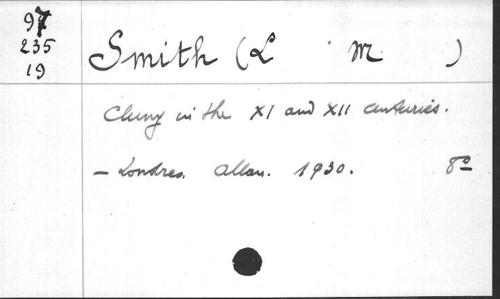 97
235
19
Smith (L. M )
Cluny in the XI and XII centuries.
- Londres. Allan. 1930. 8º